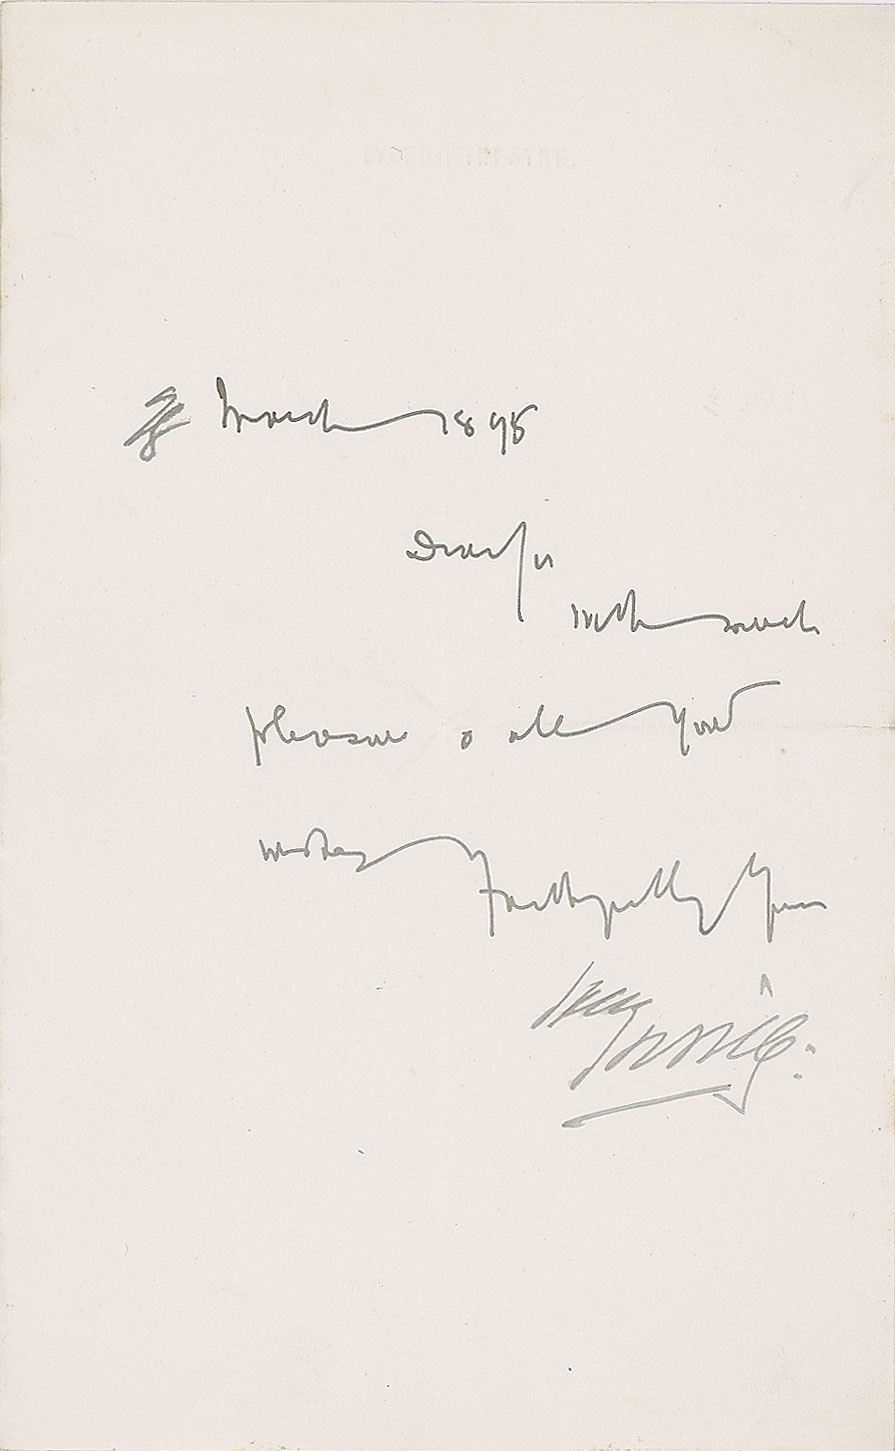 LYCEUM THEATRE.
March 1895
Dear Sir
With much
pleasure & all good
wishes
Faithfully Yours
Henry
Irving